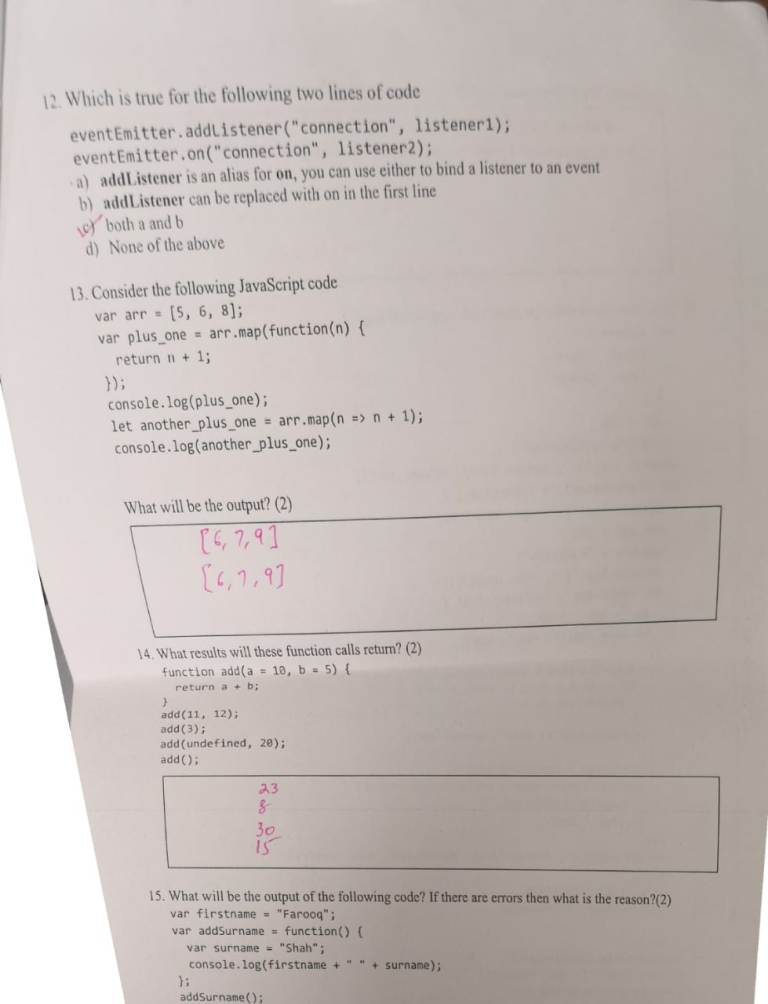 12. Which is true for the following two lines of code
eventEmitter.addListener("connection", listener1);
eventEmitter.on("connection", listener2);
a) addListener is an alias for on, you can use either to bind a listener to an event
b) addListener can be replaced with on in the first line
c) both a and b
d) None of the above
13. Consider the following JavaScript code
var arr = [5, 6, 8];
var plus_one = arr.map(function(n) {
return n + 1;
});
console.log(plus_one);
let another_plus_one = arr.map(n => n + 1);
console.log(another_plus_one);
What will be the output? (2)
[6, 7, 9]
[6, 7, 9]
14. What results will these function calls return? (2)
function add(a = 10, b = 5) {
return a + b;
}
add(11, 12);
add(3);
add(undefined, 20);
add();
23
8
30
15
15. What will be the output of the following code? If there are errors then what is the reason?(2)
var firstname = "Farooq";
var addSurname = function() {
var surname = "Shah";
console.log(firstname + " " + surname);
};
addSurname();